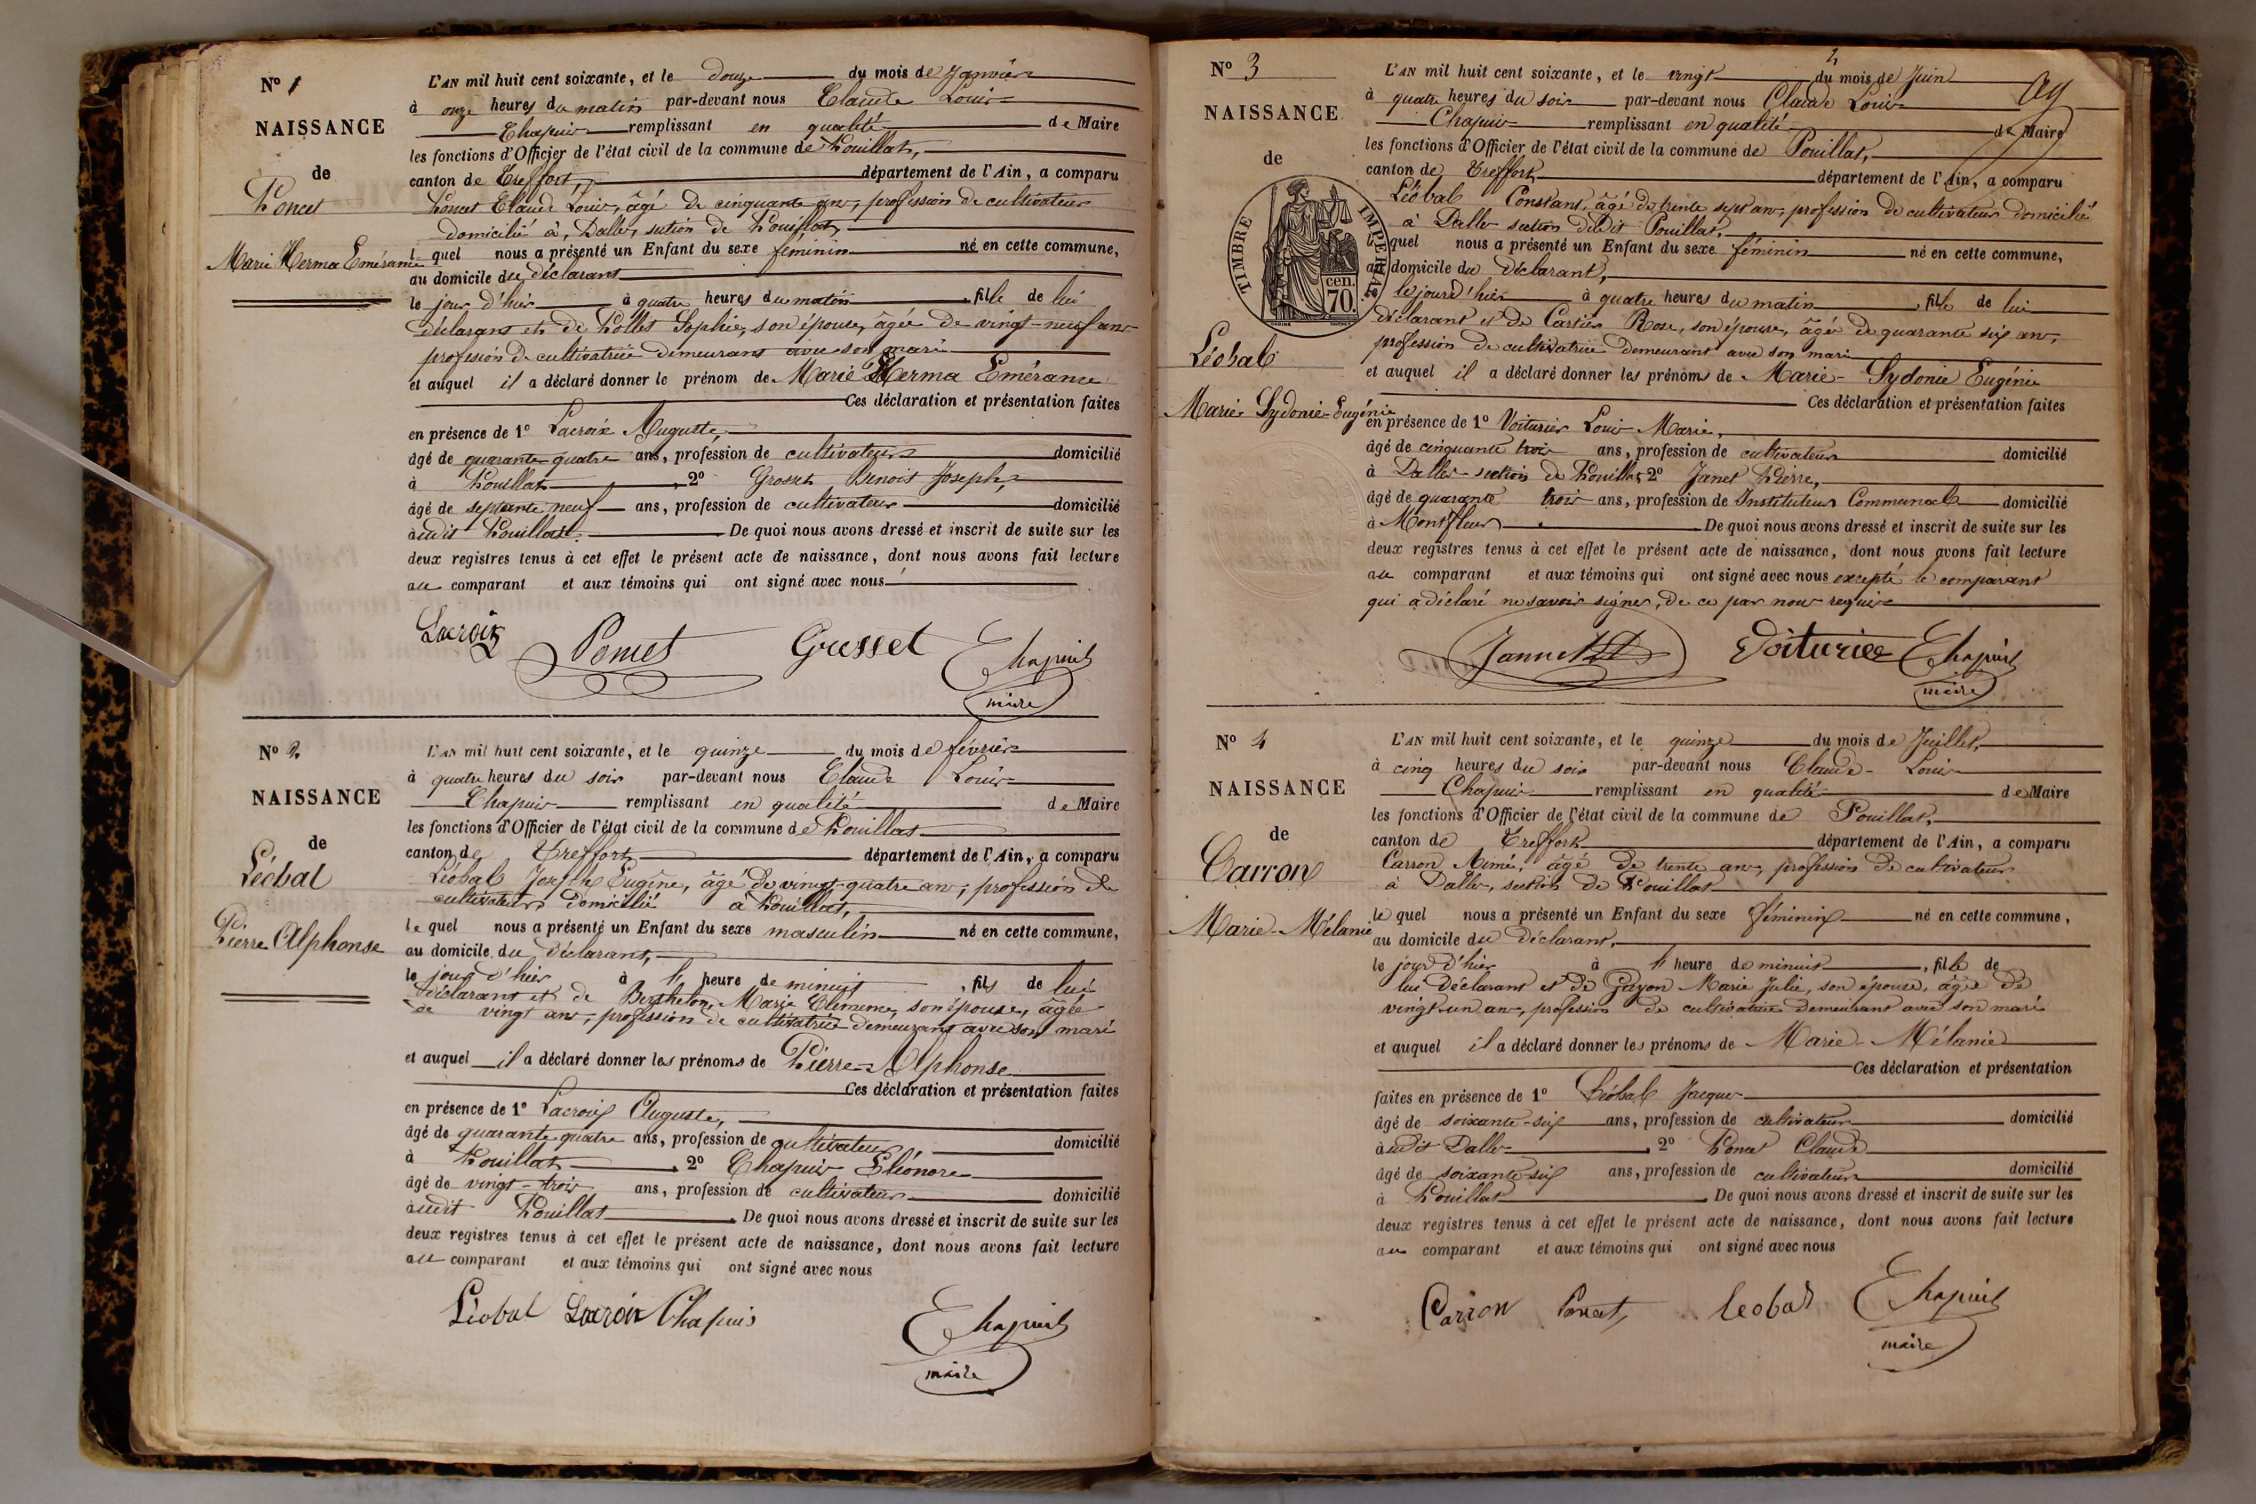 N° 1
NAISSANCE
de
Poncet
Marie Herma Emérance
L'AN mil huit cent soixante, et le douze du mois de Janvier
à onze heures du matin par-devant nous Claude Louis
Chapuis remplissant en qualité de Maire
les fonctions d'Officier de l'état civil de la commune de Pouillat,
canton de Treffort, département de l'Ain, a comparu
Poncet Claude Louis, âgé de cinquante ans, profession de cultivateur
domicilié à Dalle, section de Pouillat,
le quel nous a présenté un Enfant du sexe féminin né en cette commune,
au domicile du déclarant
le jour d'hier à quatre heures du matin fille de lui
déclarant et de Pollet Sophie, son épouse, âgée de vingt-neuf ans
profession de cultivatrice demeurant avec son mari
et auquel il a déclaré donner le prénom de Marie Herma Emérance
Ces déclaration et présentation faites
en présence de 1° Lacroix Auguste,
âgé de quarante quatre ans, profession de cultivateur domicilié
à Pouillat, 2° Grosset Benoit Joseph,
âgé de septante neuf ans, profession de cultivateur domicilié
audit Pouillat. De quoi nous avons dressé et inscrit de suite sur les
deux registres tenus à cet effet le présent acte de naissance, dont nous avons fait lecture
au comparant et aux témoins qui ont signé avec nous
Lacroix Poncet Grosset Chapuis
maire
N° 2
NAISSANCE
de
Léobal
Pierre Alphonse
L'AN mil huit cent soixante, et le quinze du mois de février
à quatre heures du soir par-devant nous Claude Louis
Chapuis remplissant en qualité de Maire
les fonctions d'Officier de l'état civil de la commune de Pouillat
canton de Treffort, département de l'Ain, a comparu
Léobal Joseph Eugène, âgé de vingt-quatre ans, profession de
cultivateur domicilié à Pouillat,
le quel nous a présenté un Enfant du sexe masculin né en cette commune,
au domicile du déclarant,
le jour d'hier à l' heure de minuit, fils de lui
déclarant et de Berthelon Marie Clémence, son épouse, âgée
de vingt ans, profession de cultivatrice demeurant avec son mari
et auquel il a déclaré donner les prénoms de Pierre-Alphonse
Ces déclaration et présentation faites
en présence de 1° Lacroix Auguste,
âgé de quarante quatre ans, profession de cultivateur domicilié
à Pouillat, 2° Chapuis Eléonore
âgé de vingt-trois ans, profession de cultivateur domicilié
audit Pouillat. De quoi nous avons dressé et inscrit de suite sur les
deux registres tenus à cet effet le présent acte de naissance, dont nous avons fait lecture
au comparant et aux témoins qui ont signé avec nous
Léobal Lacroix Chapuis Chapuis
maire
2
N° 3
NAISSANCE
de
TIMBRE IMPERIAL
cen. 70.
Léobal
Marie-Sydonie-Eugénie
L'AN mil huit cent soixante, et le vingt du mois de Juin
à quatre heures du soir par-devant nous Claude Louis
Chapuis remplissant en qualité de Maire
les fonctions d'Officier de l'état civil de la commune de Pouillat,
canton de Treffort département de l'Ain, a comparu
Léobal Constant, âgé de trente sept ans, profession de cultivateur domicilié
à Dalle section dudit Pouillat,
lequel nous a présenté un Enfant du sexe féminin né en cette commune,
au domicile du déclarant,
le jour d'hier à quatre heures du matin, fille de lui
déclarant et de Cartier Rose, son épouse, âgée de quarante six ans,
profession de cultivatrice demeurant avec son mari
et auquel il a déclaré donner les prénoms de Marie-Sydonie Eugénie
Ces déclaration et présentation faites
en présence de 1° Voiturier Louis Marie,
âgé de cinquante trois ans, profession de cultivateur domicilié
à Dalle-section de Pouillat 2° Janet Pierre,
âgé de quarante trois ans, profession de Instituteur Communal domicilié
à Montfleur. De quoi nous avons dressé et inscrit de suite sur les
deux registres tenus à cet effet le présent acte de naissance, dont nous avons fait lecture
au comparant et aux témoins qui ont signé avec nous excepté le comparant
qui a déclaré ne savoir signer, de ce par nous requis
Jannet Voiturier Chapuis
maire
N° 4
NAISSANCE
de
Carron
Marie-Mélanie
L'AN mil huit cent soixante, et le quinze du mois de Juillet,
à cinq heures du soir par-devant nous Claude-Louis
Chapuis remplissant en qualité de Maire
les fonctions d'Officier de l'état civil de la commune de Pouillat,
canton de Treffort département de l'Ain, a comparu
Carron Aimé, âgé de trente ans, profession de cultivateur
à Dalle, section de Pouillat
le quel nous a présenté un Enfant du sexe féminin né en cette commune,
au domicile du déclarant,
le jour d'hier à l' heure de minuit, fille de
lui déclarant et de Gayon Marie Julie, son épouse, âgée de
vingt-un ans, profession de cultivatrice demeurant avec son mari
et auquel il a déclaré donner les prénoms de Marie-Mélanie
Ces déclaration et présentation
faites en présence de 1° Léobal Jacques
âgé de soixante-six ans, profession de cultivateur domicilié
audit Dalle, 2° Poncet Claude
âgé de soixante six ans, profession de cultivateur domicilié
à Pouillat. De quoi nous avons dressé et inscrit de suite sur les
deux registres tenus à cet effet le présent acte de naissance, dont nous avons fait lecture
au comparant et aux témoins qui ont signé avec nous
Carron Poncet Leobal Chapuis
maire